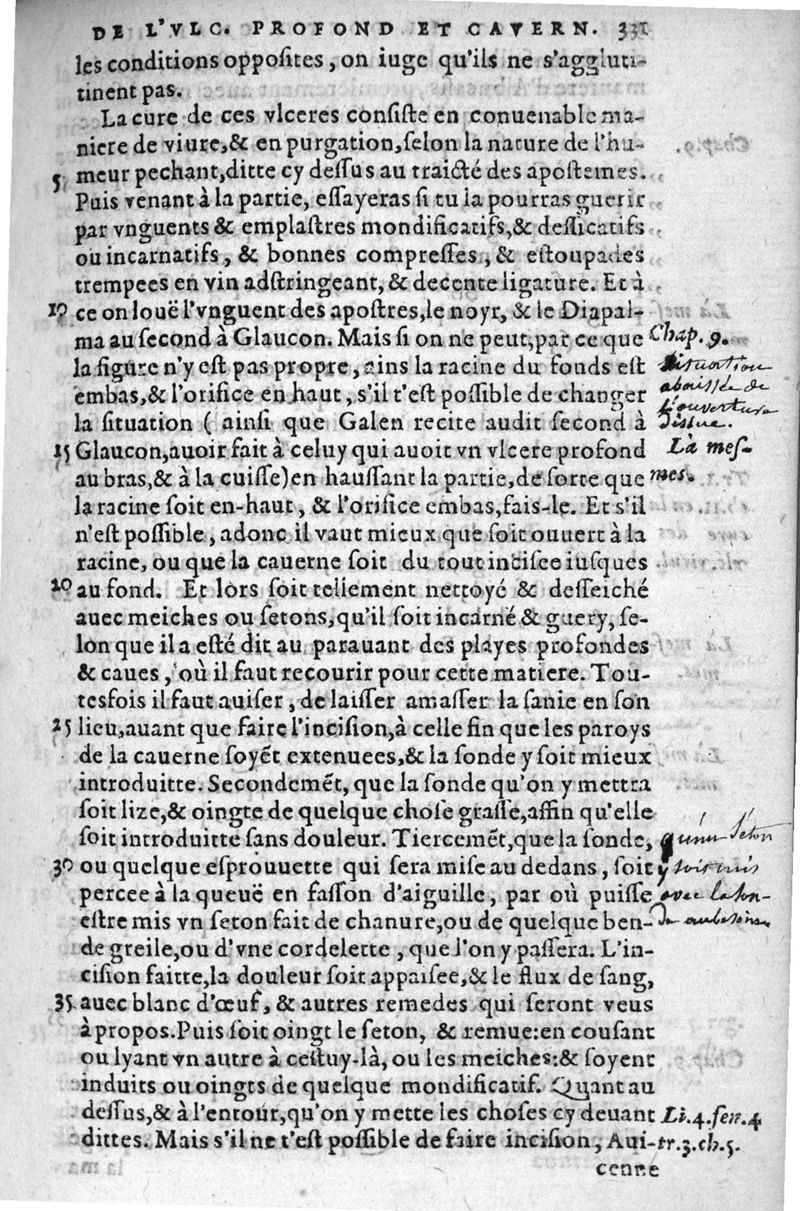 DE L'VLC. PROFOND ET CAVERN. 331
les conditions opposites, on iuge qu'ils ne s'agglutì-
tinent pas.
La cure de ces vlceres consiste en conuenable ma-
niere de viure, & en purgation, selon la nature de l'hu-
5 meur pechant, ditte cy dessus au traicté des apostemes.
Puis venant à la partie, essayeras si tu la pourras guerir
par vnguents & emplastres mondificatifs, & dessicatifs
ou incarnatifs, & bonnes compresses, & estoupades
trempees en vin adstringeant, & decente ligature. Et à
10 ce on louë l'vnguent des apostres, le noyr, & le Diapal-
ma au second à Glaucon. Mais si on ne peut, par ce que Chap. 9.
la figure n'y est pas propre, ains la racine du fonds est situation
embas, & l'orifice en haut, s'il t'est possible de changer abaissée de
la situation ( ainsi que Galen recite audit second à l'ouverture
dissue.
15 Glaucon, auoir fait à celuy qui auoit vn vlcere profond Là mes-
au bras, & à la cuisse) en haussant la partie, de sorte que mes.
la racine soit en-haut, & l'orifice embas, fais-le. Et s'il
n'est possible, adonc il vaut mieux que soit ouuert à la
racine, ou que la cauerne soit du tout incisee iusques
20 au fond. Et lors soit tellement nettoyé & desseiché
auec meiches ou setons, qu'il soit incarné & guery, se-
lon que il a esté dit au parauant des playes profondes
& caues, où il faut recourir pour cette matiere. Tou-
tesfois il faut auiser, de laisser amasser la sanie en son
25 lieu, auant que faire l'incision, à celle fin que les paroys
de la cauerne soyẽt extenuees, & la sonde y soit mieux
introduitte. Secondemẽt, que la sonde qu'on y mettra
soit lize, & oingte de quelque chose grasse, affin qu'elle
soit introduitte sans douleur. Tiercemẽt, que la sonde, qu'un seton
30 ou quelque esprouuette qui sera mise au dedans, soit y soit mis
percee à la queuë en fasson d'aiguille, par où puisse avec la son-
estre mis vn seton fait de chanure, ou de quelque ben- de
de greile, ou d'vne cordelette, que l'on y passera. L'in-
cision faitte, la douleur soit appaisee, & le flux de sang,
35 auec blanc d'œuf, & autres remedes qui seront veus
à propos. Puis soit oingt le seton, & remue: en cousant
ou lyant vn autre à cestuy-là, ou les meiches: & soyent
induits ou oingts de quelque mondificatif. Quant au
dessus, & à l'entour, qu'on y mette les choses cy deuant Li. 4. sen. 4
dittes. Mais s'il ne t'est possible de faire incision, Aui- tr. 3. ch. 5.
cenne